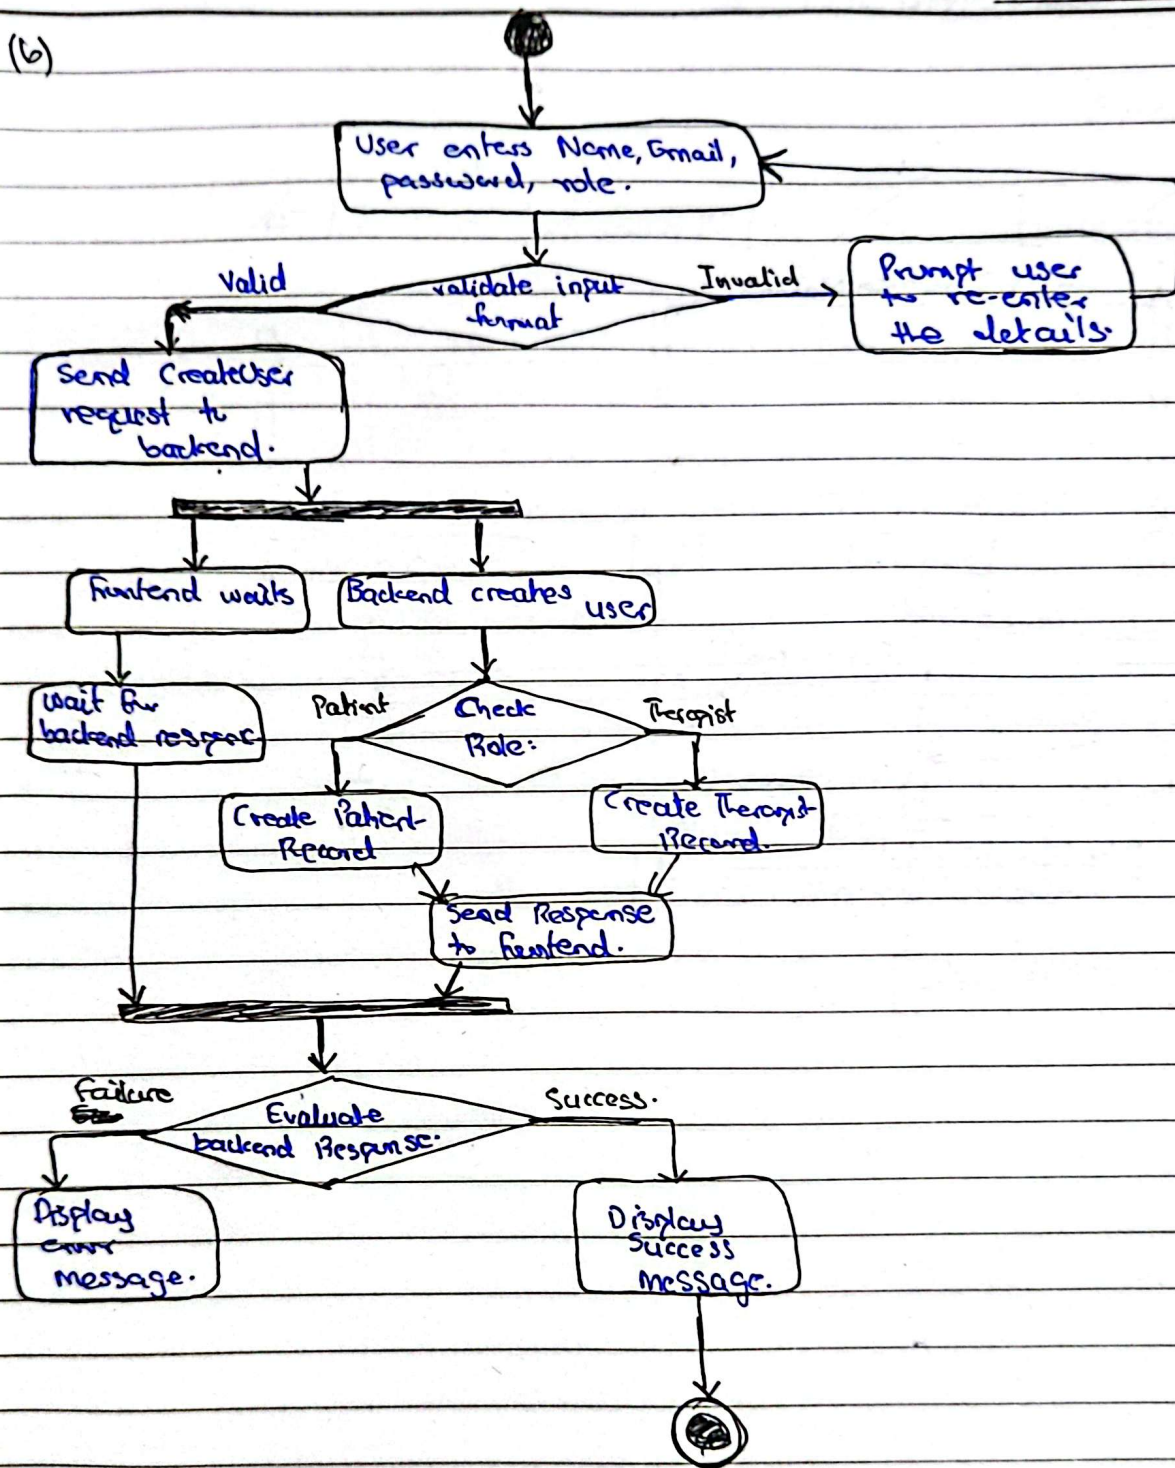 (6)
User enters Name, Email,
password, role.
Valid
validate input
format
Invalid
Prompt user
to re-enter
the details.
Send CreateUser
request to
backend.
Frontend waits
Backend creates
user
wait for
backend response
Patient
Check
Role:
Therapist
Create Patient
Record
Create Therapist
Record.
Send Response
to frontend.
Failure
Evaluate
backend Response.
Success.
Display
error
message.
Display
Success
message.